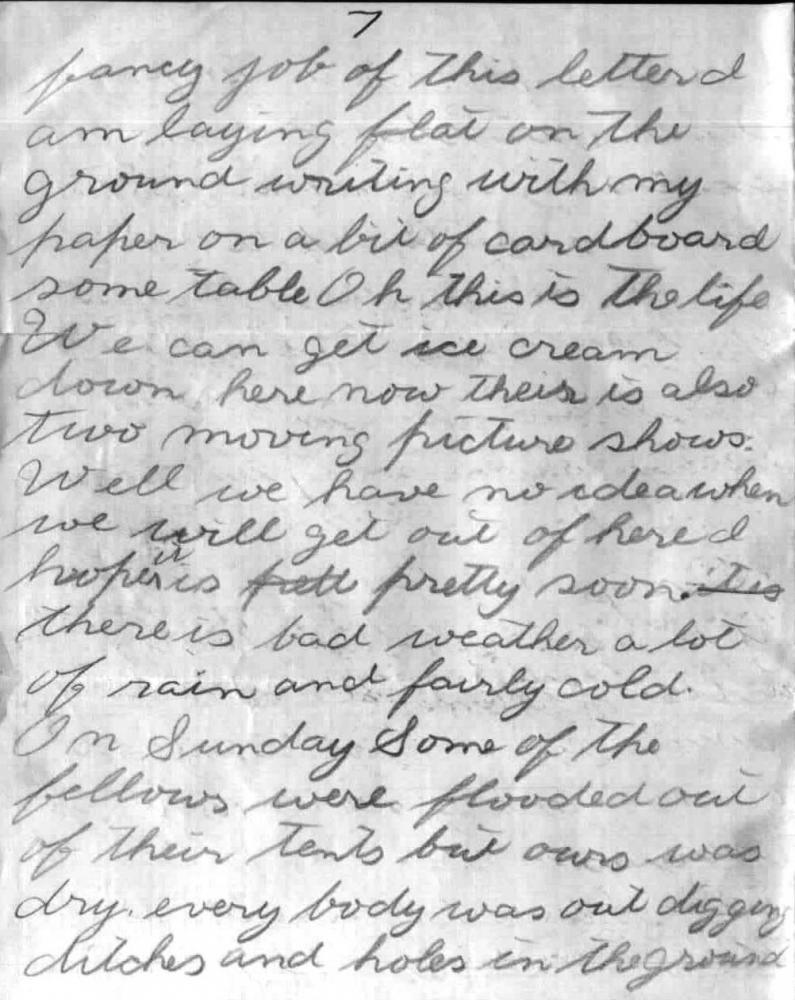 7
fancy job of this letter I
am laying flat on the
ground writing with my
paper on a bit of cardboard
some table Oh this is the life
We can get ice cream
down here now their is also
two moving picture shows.
Well we have no idea when
we will get out of here I
hope it is pretty soon. it is
there is bad weather a lot
of rain and fairly cold.
On Sunday Some of the
fellows were flooded out
of their tents but ours was
dry. every body was out digging
ditches and holes in the ground